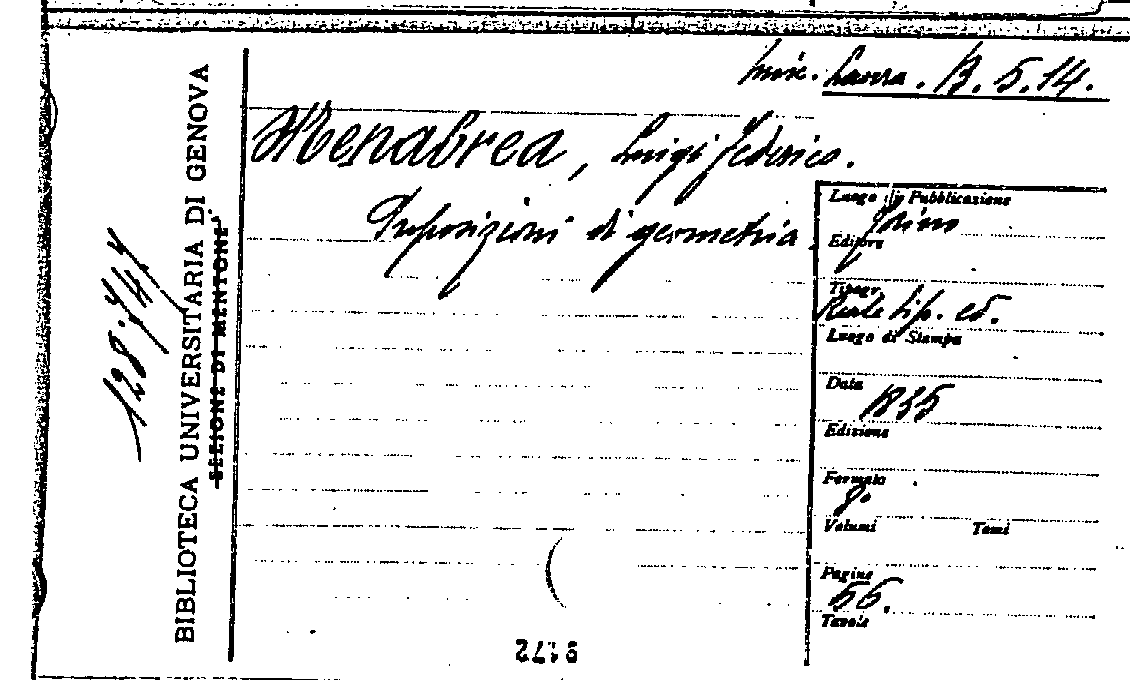 misc. Lanza. B. 5. 14.
Menabrea, Luigi Federico.
Proposizioni di geometria.
Luogo di Pubblicazione
Torino
Editore
Tipogr.
Reale tip. ed.
Luogo di Stampa
Data
1835
Edizione
Formato
8°
Volumi Tomi
Pagine
56.
Tavole
BIBLIOTECA UNIVERSITARIA DI GENOVA
SEZIONE DI MENTONE